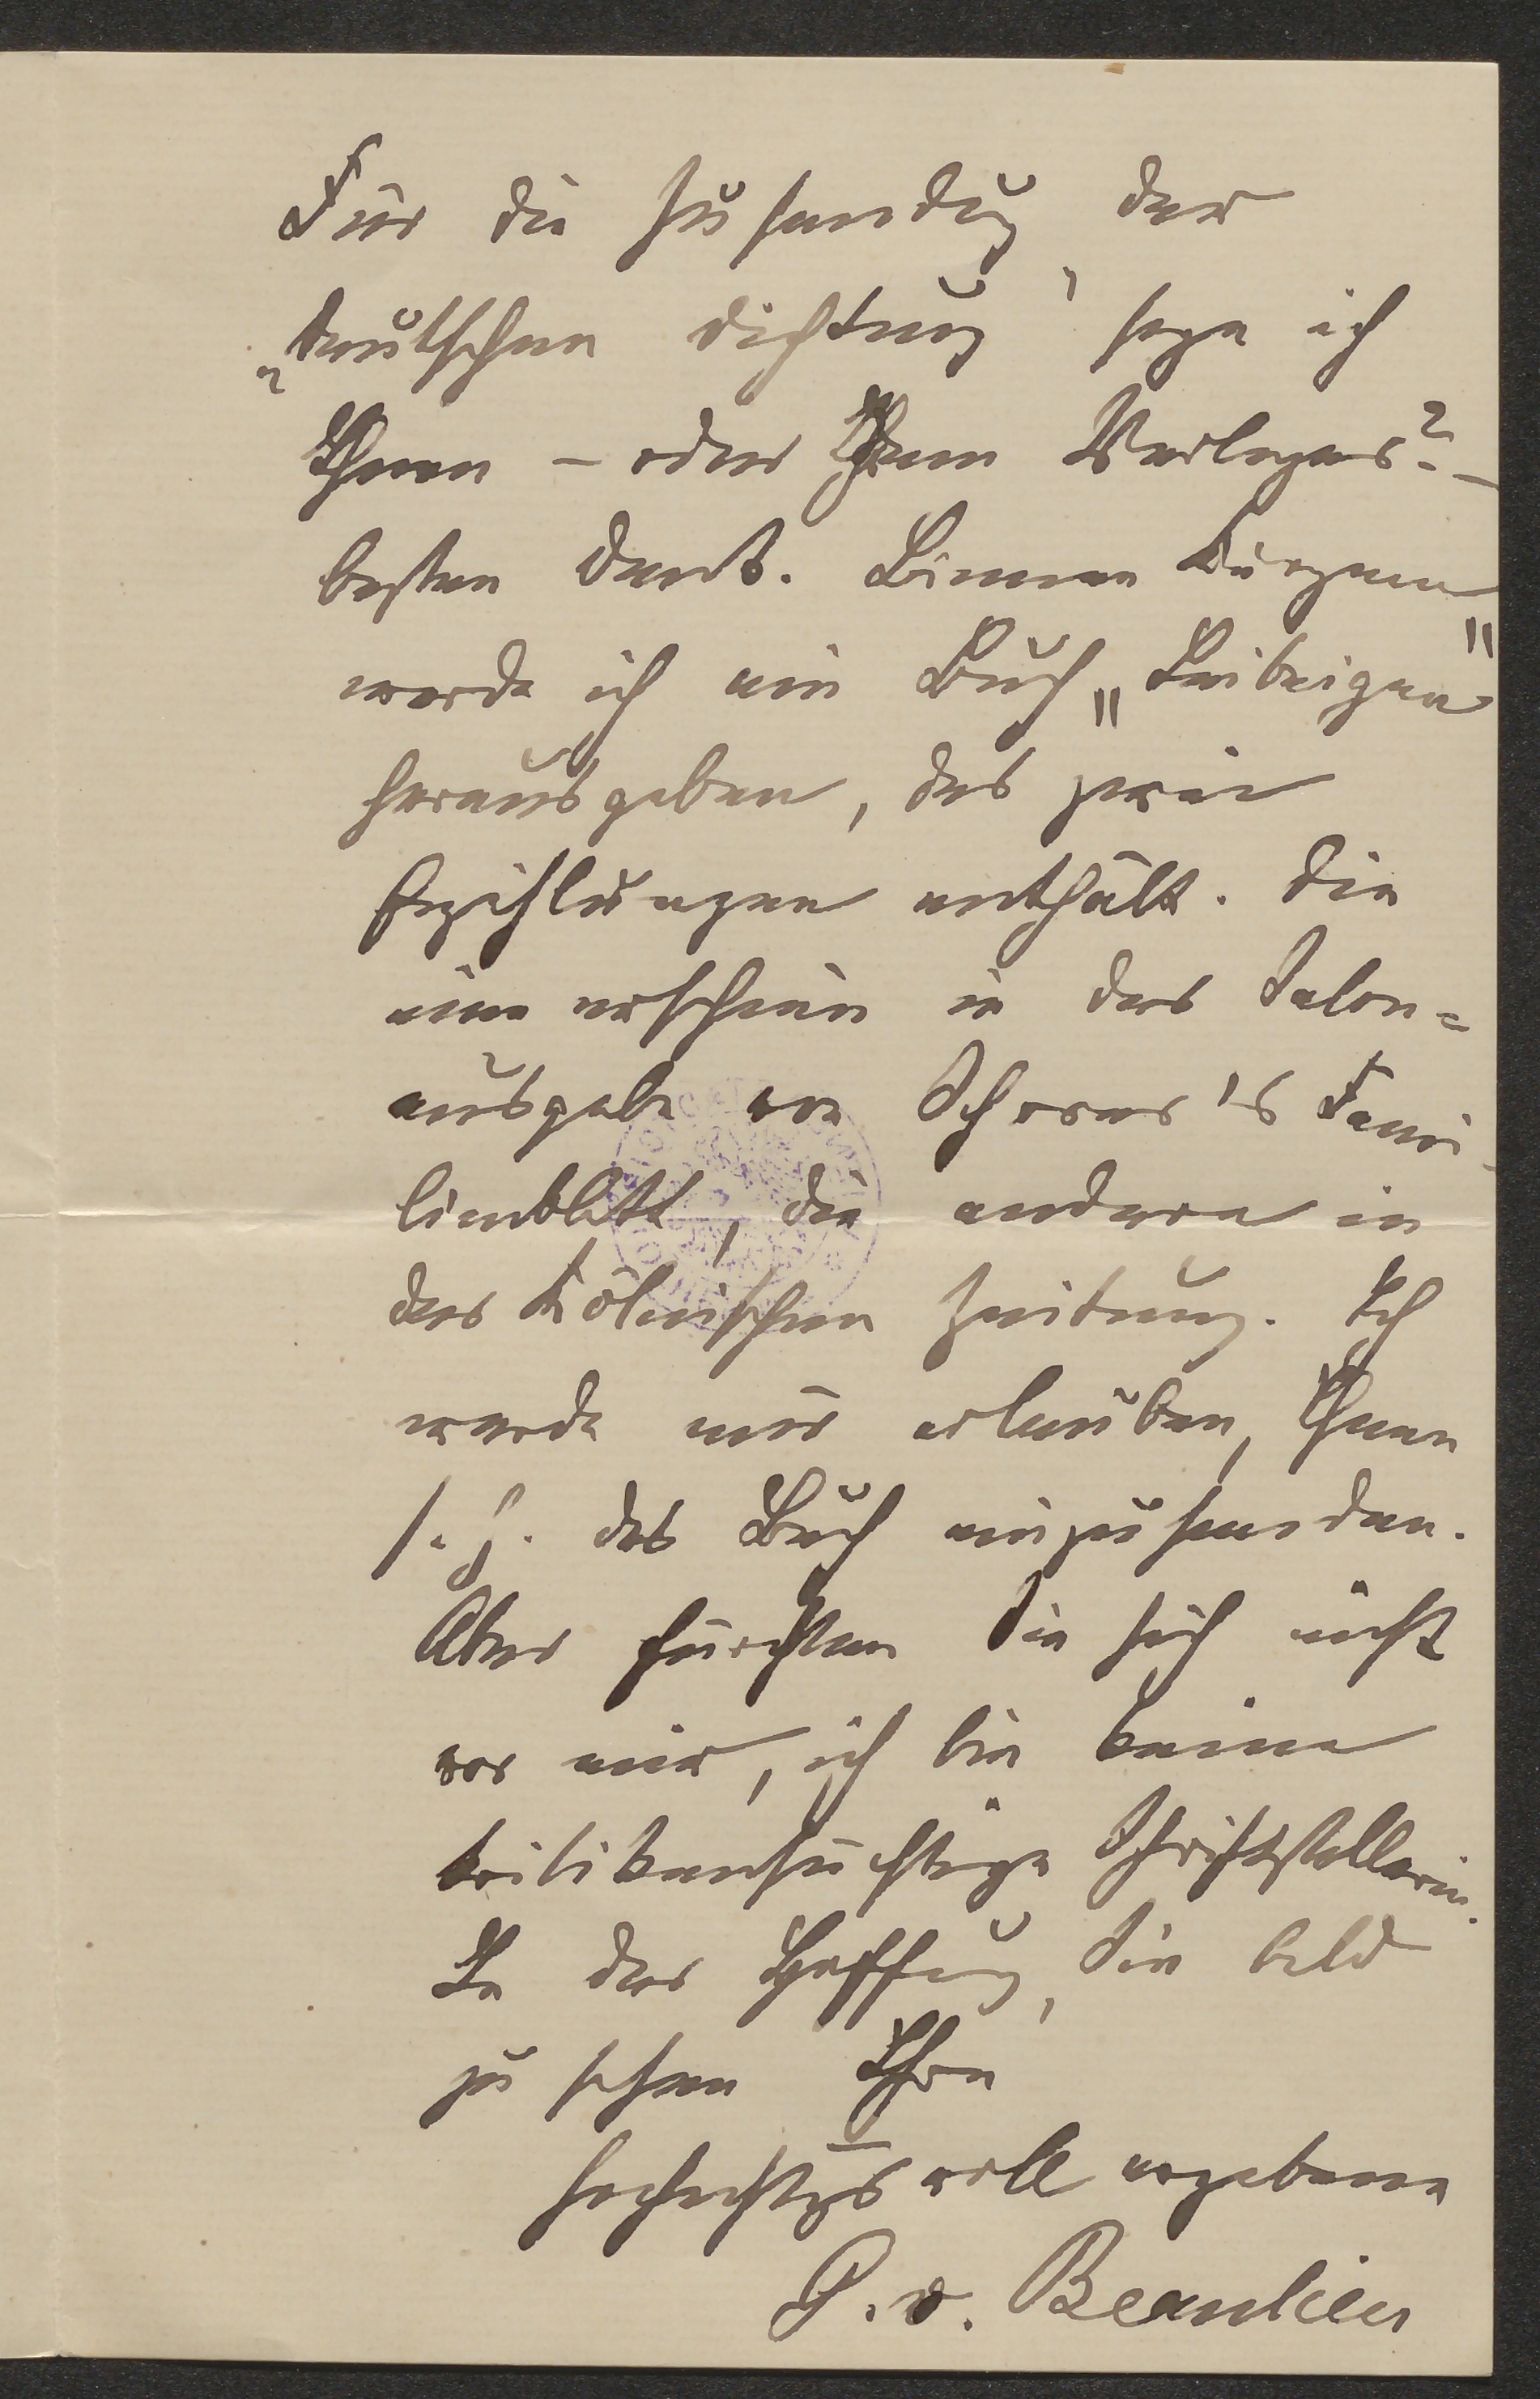 Für die Zusendug der
„deutschen Dichtung' sage ich
Ihnen – oder Ihrem Verleger? –
besten Dank. Binnen Kurzem
werde ich ein Buch „Leibeigen"
herausgeben, das zwei
Erzählungen enthält. Die
eine erschien in der Salon=
ausgabe von Schorer's Fami-
lienblatt, die andere in
der Kölnischen Zeitung. Ich
werde mir erlauben, Ihnen
s. Z. das Buch einzusenden.
Aber fürchten Sie sich nicht
vor mir, ich bin keine
kritikensüchtige Schriftstellerin.
In der Hoffnug, Sie bald
zu sehen Ihre
hochachtgsvoll ergebene
G. v. Beaulieu